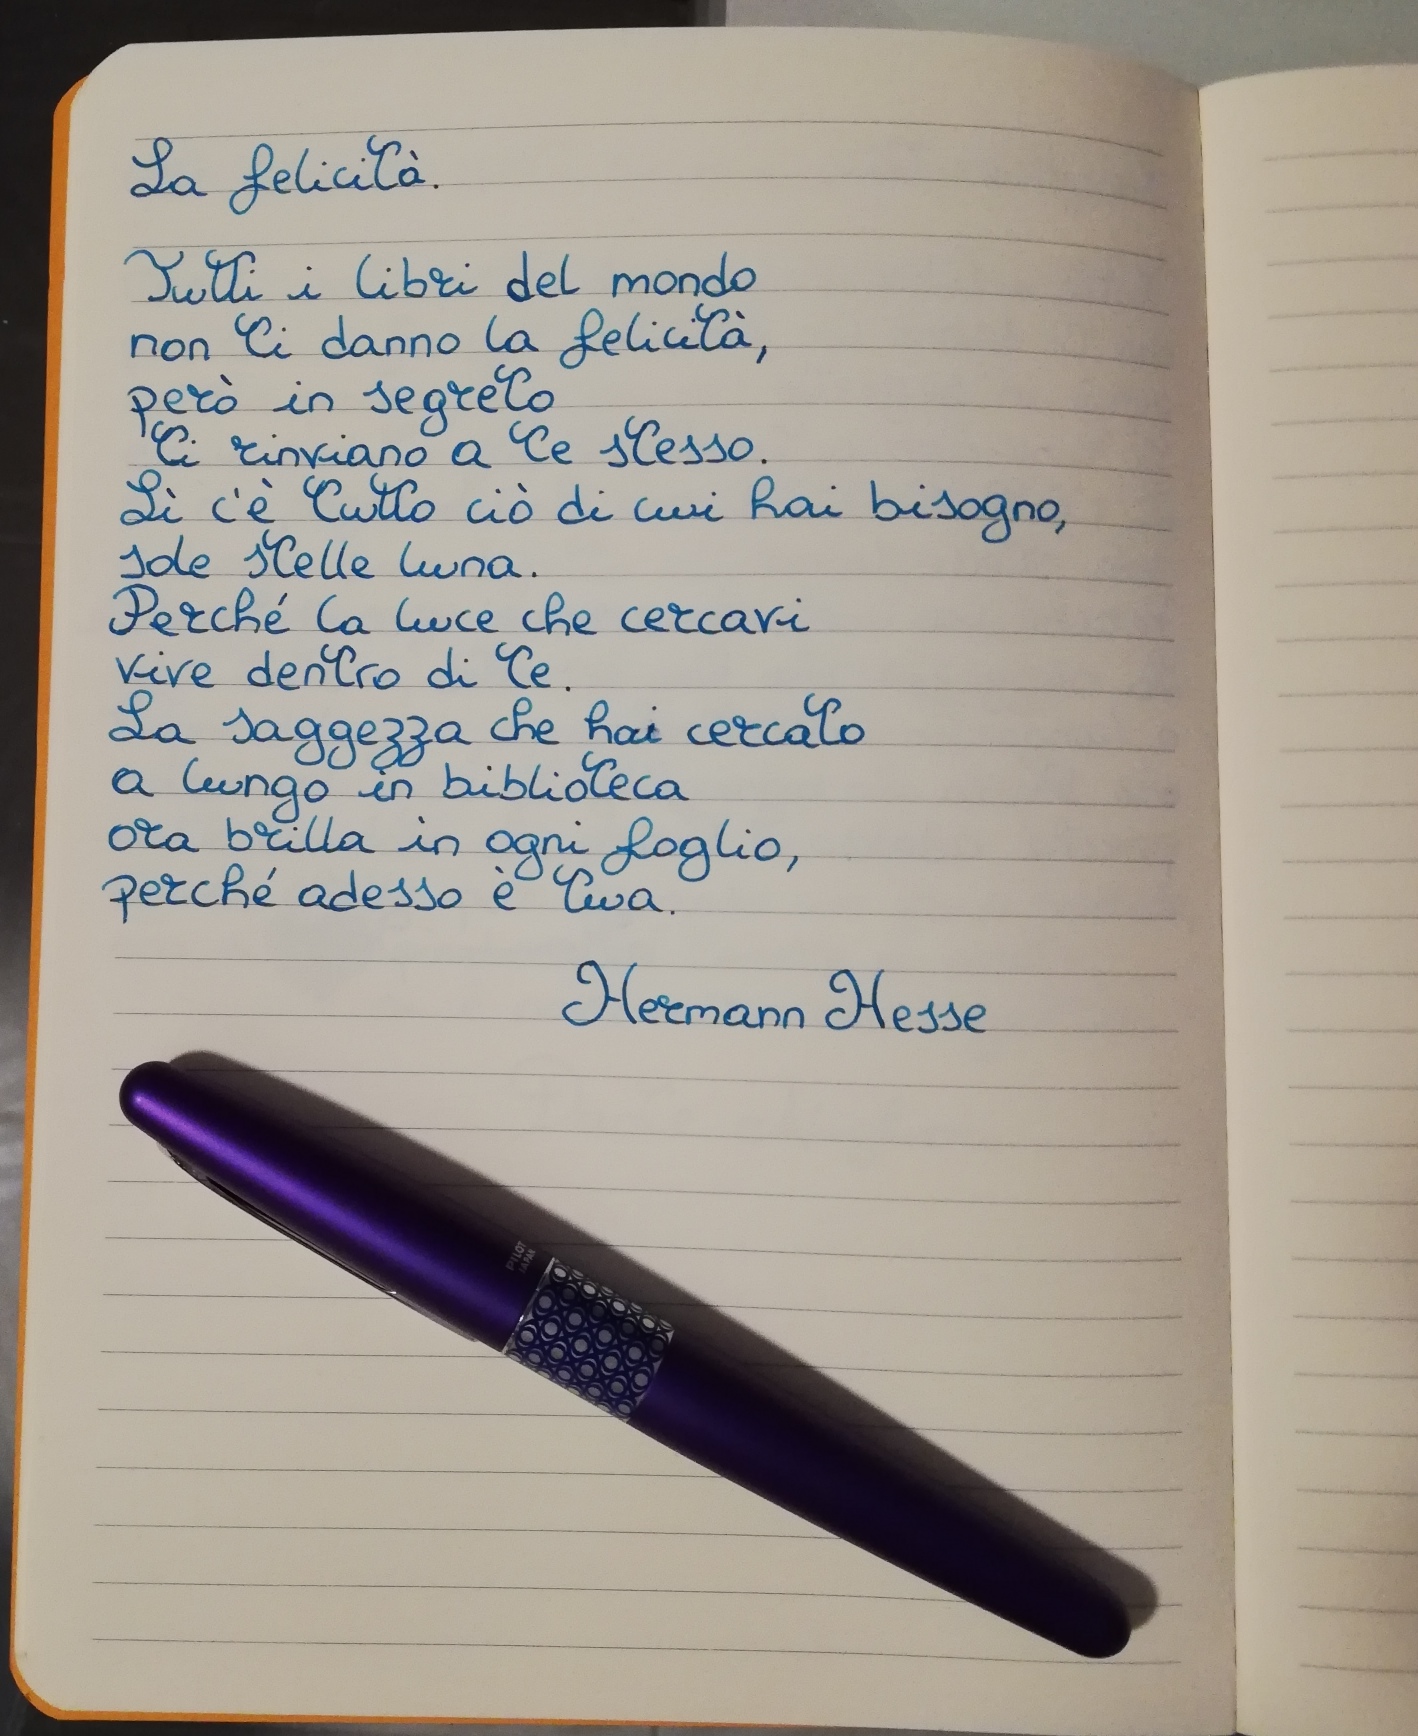 La felicità.
Tutti i libri del mondo
non ti danno la felicità,
però in segreto
ti rinviano a te stesso.
Lì c'è tutto ciò di cui hai bisogno,
sole stelle luna.
Perché la luce che cercavi
vive dentro di te.
La saggezza che hai cercato
a lungo in biblioteca
ora brilla in ogni foglio,
perché adesso è tua.
Hermann Hesse
PILOT
JAPAN